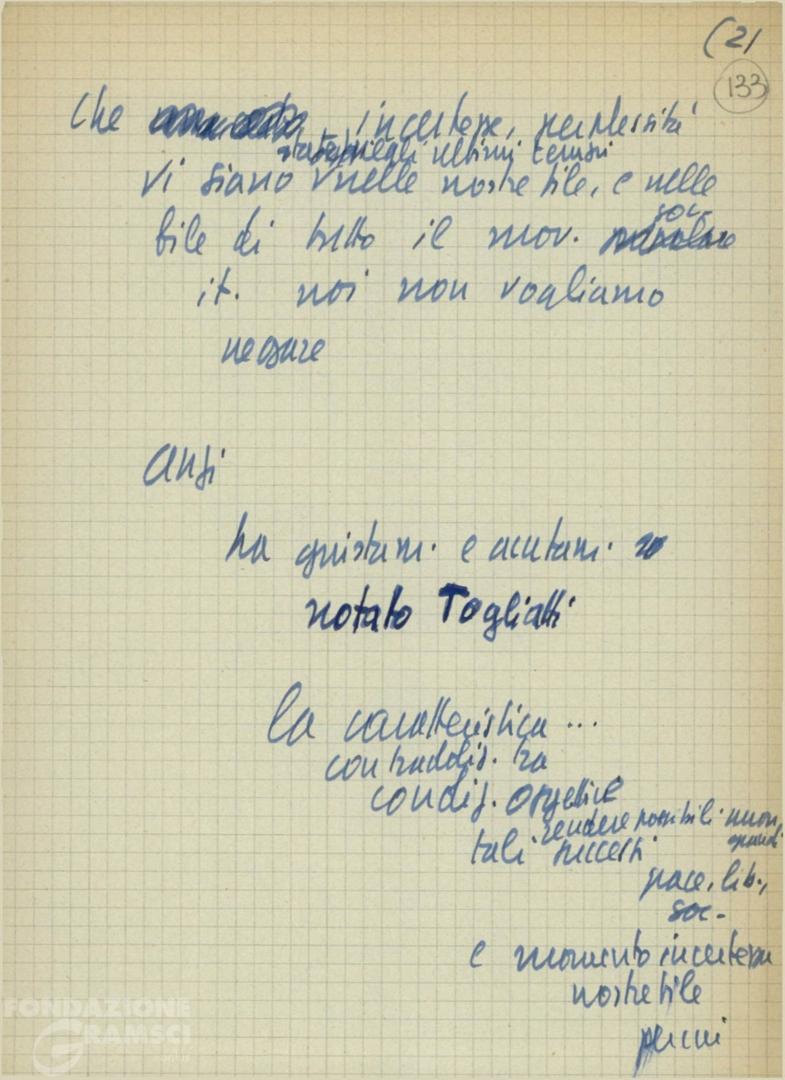 (2)
133
che incertezze, perplessità
negli ultimi tempi
vi siano nelle nostre file, e nelle
soc.
file di tutto il mov.
it. noi non vogliamo
negare
anzi
ha giustam. e acutam.
notato Togliatti
la caratteristica...
contraddiz. tra
condiz. oggettive
rendere possibili nuovi,
grandi
tali successi
pace, lib.,
soc.
e momento incertezza
nostre file
per cui
FONDAZIONE
GRAMSCI